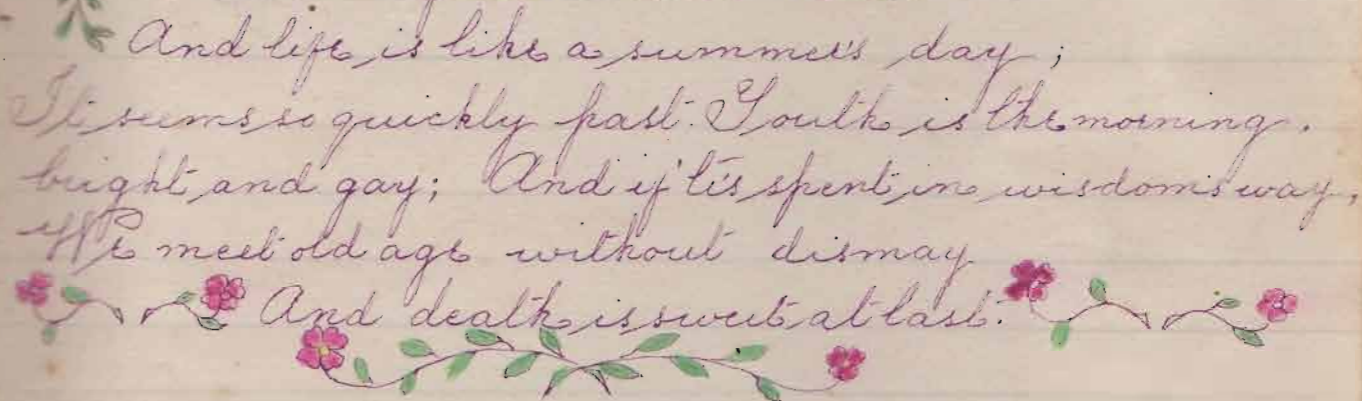 And life is like a summer's day;
It seems so quickly past. Youth is the morning.
bright and gay; And if 'tis spent in wisdom's way,
We meet old age without dismay
And death is sweet at last.